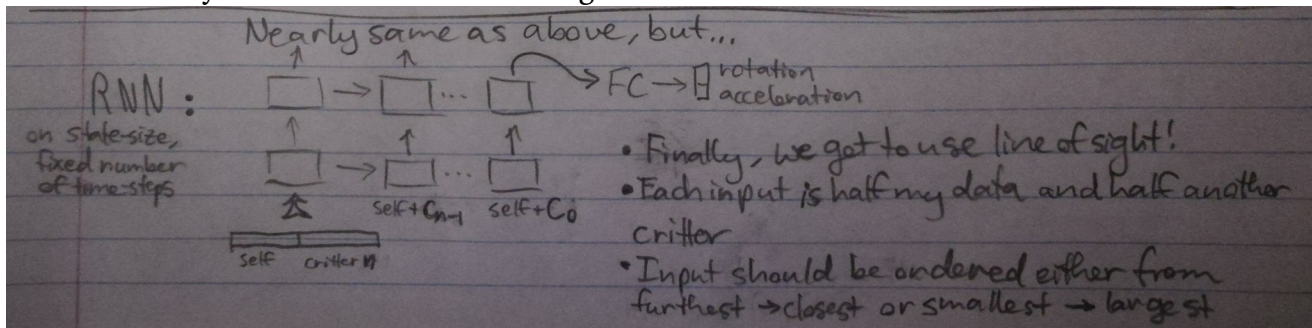 Nearly same as above, but...
RNN:
on state-size,
fixed number
of time-steps
... FC → rotation
acceleration
...
self+Cn-1 self+C0
self critter n
• Finally, we get to use line of sight!
• Each input is half my data and half another
critter
• Input should be ordered either from
furthest → closest or smallest → largest